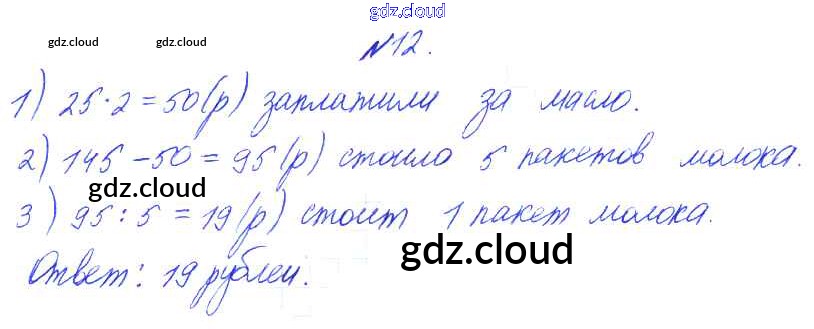 gdz.cloud
gdz.cloud gdz.cloud
№12.
1) 25·2=50(р) заплатили за масло.
2) 145-50=95(р) стоило 5 пакетов молока.
gdz.cloud
3) 95:5=19(р) стоит 1 пакет молока.
gdz.cloud
Ответ: 19 рублей.